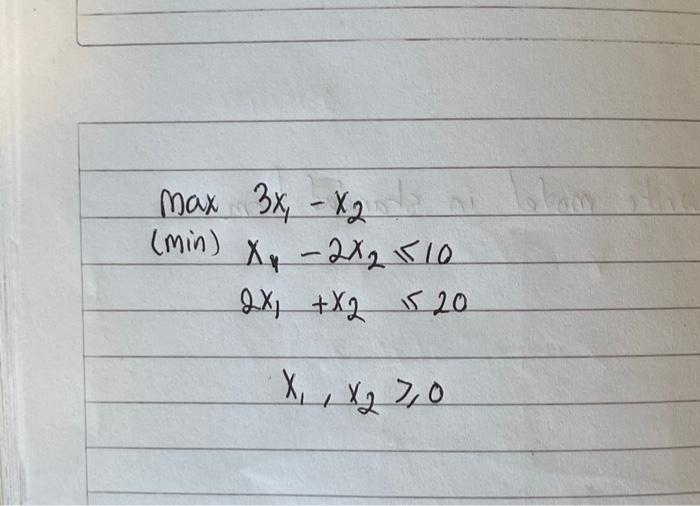 max 3x₁ - x₂
(min) x₁ - 2x₂ ≤ 10
2x₁ + x₂ ≤ 20
x₁, x₂ ≥ 0